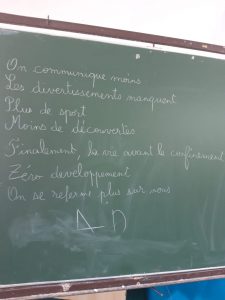 On communique moins
Les divertissements manquent
Plus de sport
Moins de découvertes
Finalement, la vie avant le confinement
Zéro developpement
On se referme plus sur nous
A.D